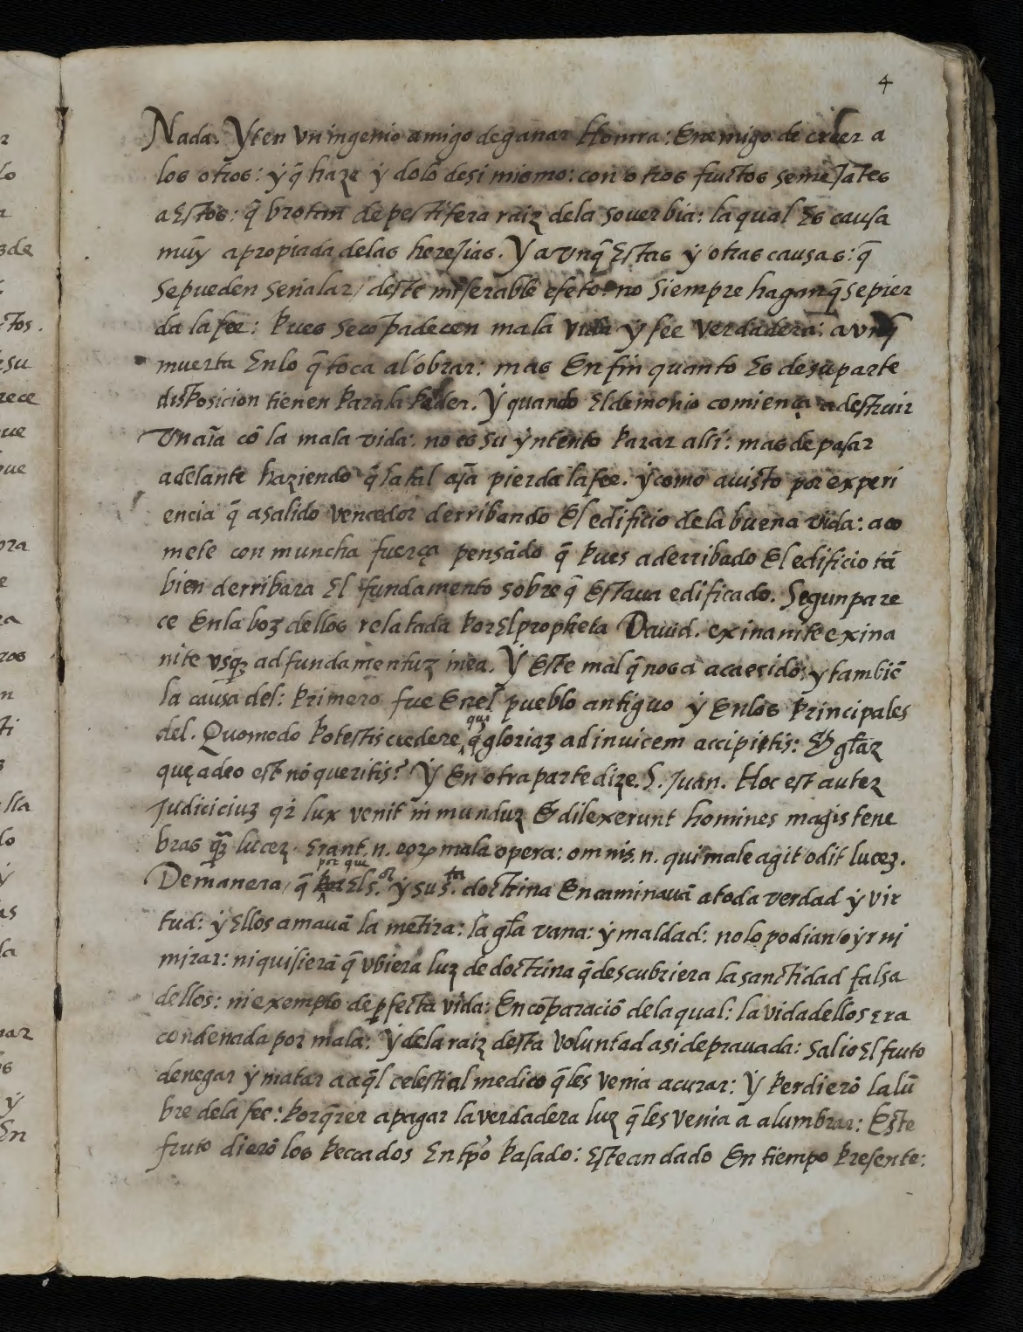 4
Nada. Yten vn ingenio amigo de ganar Honrra: Enemigo de creer a
los otros: y q̃ haze ydolo de si mismo: con otros frutos semejãtes
a Estos: q̃ brotan de pestifera raiz de la souerbia: la qual Es causa
muy apropiada de las heresias. Y avnq̃ Estas y otras causas: q̃
se pueden señalar / deste miserable efeto: no siempre hagan q̃ se pier
da la fee: Pues padecen mala vida y fee verdadera: avnq̃
muerta En lo q̃ toca al obrar: mas En fin quanto Es de su parte
disposicion tienen Para la Perder. Y quando El demonio comiença a destruir
vna aĩa cõ la mala vida: no es su yntento Parar alli: mas de pasar
adelante haziendo q̃ la tal aĩa pierda la fee. y como a uisto por experi
encia q̃ a salido vencedor derribando El edificio de la buena vida: aco
mete con muncha fuerça pensãdo q̃ Pues a derribado El edificio tã
bien derribara El fundamento sobre q̃ Estaua edificado. Segun pare
ce En la boz dellos relatada Por El propheta Dauid. exinanite exina
nite vsqȝ ad fundamentuȝ in ea. Y Este mal q̃ nos a acaesido: y tambiẽ
la causa del: Primero fue En el pueblo antiguo y En los Principales
del. Quomodo Potestis credere q̃ gloriaȝ ad inuicem accipitis: Et gl̃aȝ
que
quę a deo est nõ queritis? Y En otra parte dize. S. Juan. Hoc est auteȝ
judiciciuȝ qʳ lux venit in munduȝ & dilexerunt homines magis tene
bras q̃ȝ luceȝ. Erant. n. eoꝝ mala opera: omnis. n. qui male agit odit luceȝ.
De manera / q̃ El S.ᵒʳ y su S.ᵗᵃ doctrina Encaminauã a toda verdad y vir
por que
tud: y Ellos amauã la mẽtira: la gl̃a vana: y maldad: no lo podian oyr ni
mirar: ni quisierã q̃ vbiera luz de doctrina q̃ descubriera la sanctidad falsa
dellos: ni exemplo de ꝑfecta vida: En cõparaciõ de la qual: la vida dellos Era
condenada por mala: Y de la raiz desta voluntad asi deprauada: salio El fruto
de negar y matar a aq̃l celestial medico q̃ les venia a curar: Y Perdierõ la lũ
bre de la fee: Por q̃rer apagar la verdadera luz q̃ les venia a alumbrar: Este
fruto dierõ los Peccados En tp̃o Pasado: Este an dado En tiempo Presente: